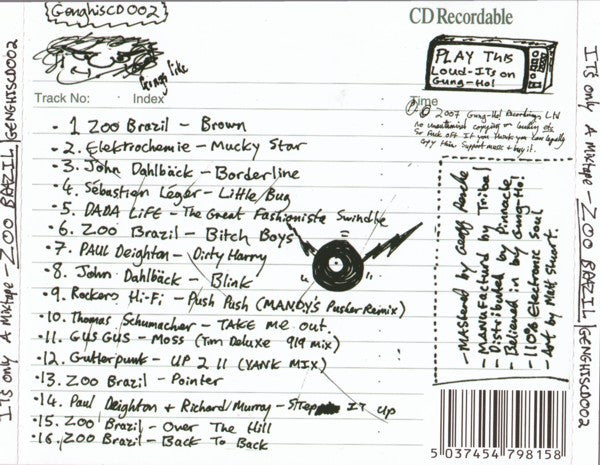 GenghisCD002
CD Recordable
PLAY THIS
LOUD-ITs on
GUNG-Ho!
Track No:
Index
Time
℗ © 2007 Gung-Ho! Recordings LTD
No unauthorised copying or
So If you
Support music & buy it.
1 Zoo Brazil – Brown
2. Elektrochemie – Mucky Star
3. John Dahlbäck – Borderline
4. Sebastien Leger – Little Bug
5. DADA LIFE – The Great Fashionista Swindle
6. Zoo Brazil – Bitch Boys
7. PAUL Deighton – Dirty Harry
8. John Dahlbäck – Blink
9. Rockers Hi-Fi – Push Push (MANDY's Pusher Remix)
10. Thomas Schumacher – TAKE ME OUT.
11. GUS GUS – Moss (Tim Deluxe 919 mix)
12. Gutterpunk – UP 2 11 (YANK MIX)
13. Zoo Brazil – Pointer
14. Paul Deighton + Richard Murray – STEP IT UP
15. Zoo Brazil – Over The Hill
16. Zoo Brazil – Back To Back
- MAstered by Geoff Pesche
- MANUfactured by Tribal
- Distributed by Pinnacle
- Believed in by Gung-Ho!
- 110% Electronic Soul
- Art by Matt Short.
5 037454 798158
ITS only A Mixtape – ZOO BRAZIL GENGHISCD002
ITS only A Mixtape – ZOO BRAZIL GENGHISCD002